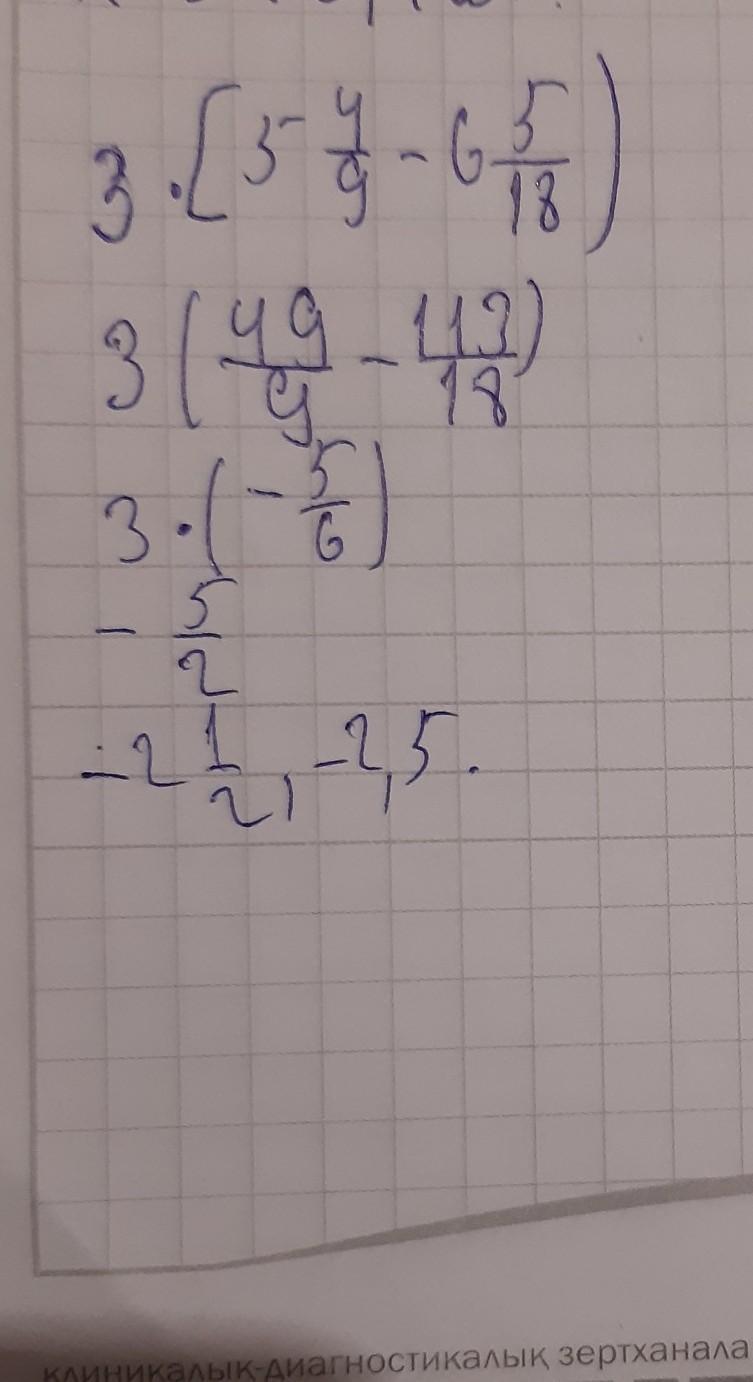 3 · [5 4/9 - 6 5/18)
3 (49/9 - 113/18)
3 · (- 5/6)
- 5/2
-2 1/2, -2,5.
клиникалық-диагностикалық зертханала